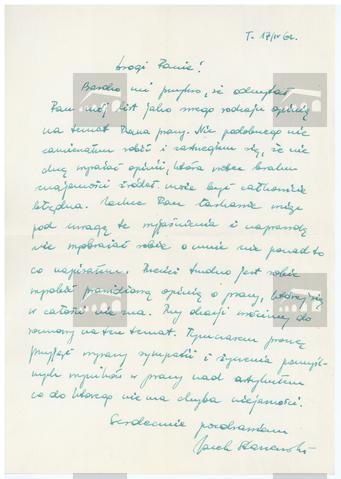 T. 17/IV 62.
Drogi Panie!
Bardzo mi przykro, że odczytał
Pan mój list jako swego rodzaju opinię
na temat Pana pracy. Nic podobnego nie
zamierzałem robić i zastrzegłem się, że nie
chcę wyrażać opinii, która wobec braku
znajomości źródeł może być całkowicie
błędna. Zechce Pan łaskawie wziąć
pod uwagę te wyjaśnienia i naprawdę
nie wyobrażać sobie o mnie nic ponad to
co napisałem. Przecież trudno jest sobie
wyrobić prawdziwą opinię o pracy, której się
w całości nie zna. Przy okazji wrócimy do
rozmowy na ten temat. Tymczasem proszę
przyjąć wyrazy sympatii i życzenia pomyśl-
nych wyników w pracy nad artykułem
co do którego nie ma chyba wątpliwości.
Serdecznie pozdrawiam
Jacek